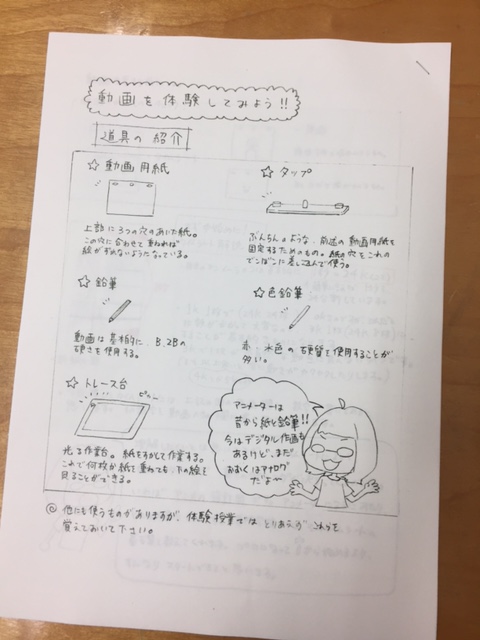 動画を体験してみよう!!
道具の紹介
☆ 動画用紙
上部に3つの穴のあいた紙。
この穴に合わせて重ねれば
絵がずれないようになっている。
☆ タップ
ぶんちんのような、前述の動画用紙を
固定するためのもの。紙の穴をこれの
でっぱりに差し込んで使う。
☆ 鉛筆
動画は基本的に、B、2Bの
硬さを使用する。
☆ 色鉛筆
赤、水色の硬質を使用することが
多い。
☆ トレース台
光る作業台。紙をすかして作業する。
これで何枚か紙を重ねても、下の絵を
見ることができる。
アニメーターは
昔から紙と鉛筆!!
今はデジタル作画も
あるけど、まだ
アナログ
だよ〜
◎ 他にも使うものがありますが、体験授業では とりあえず これらを
覚えておいて下さい。